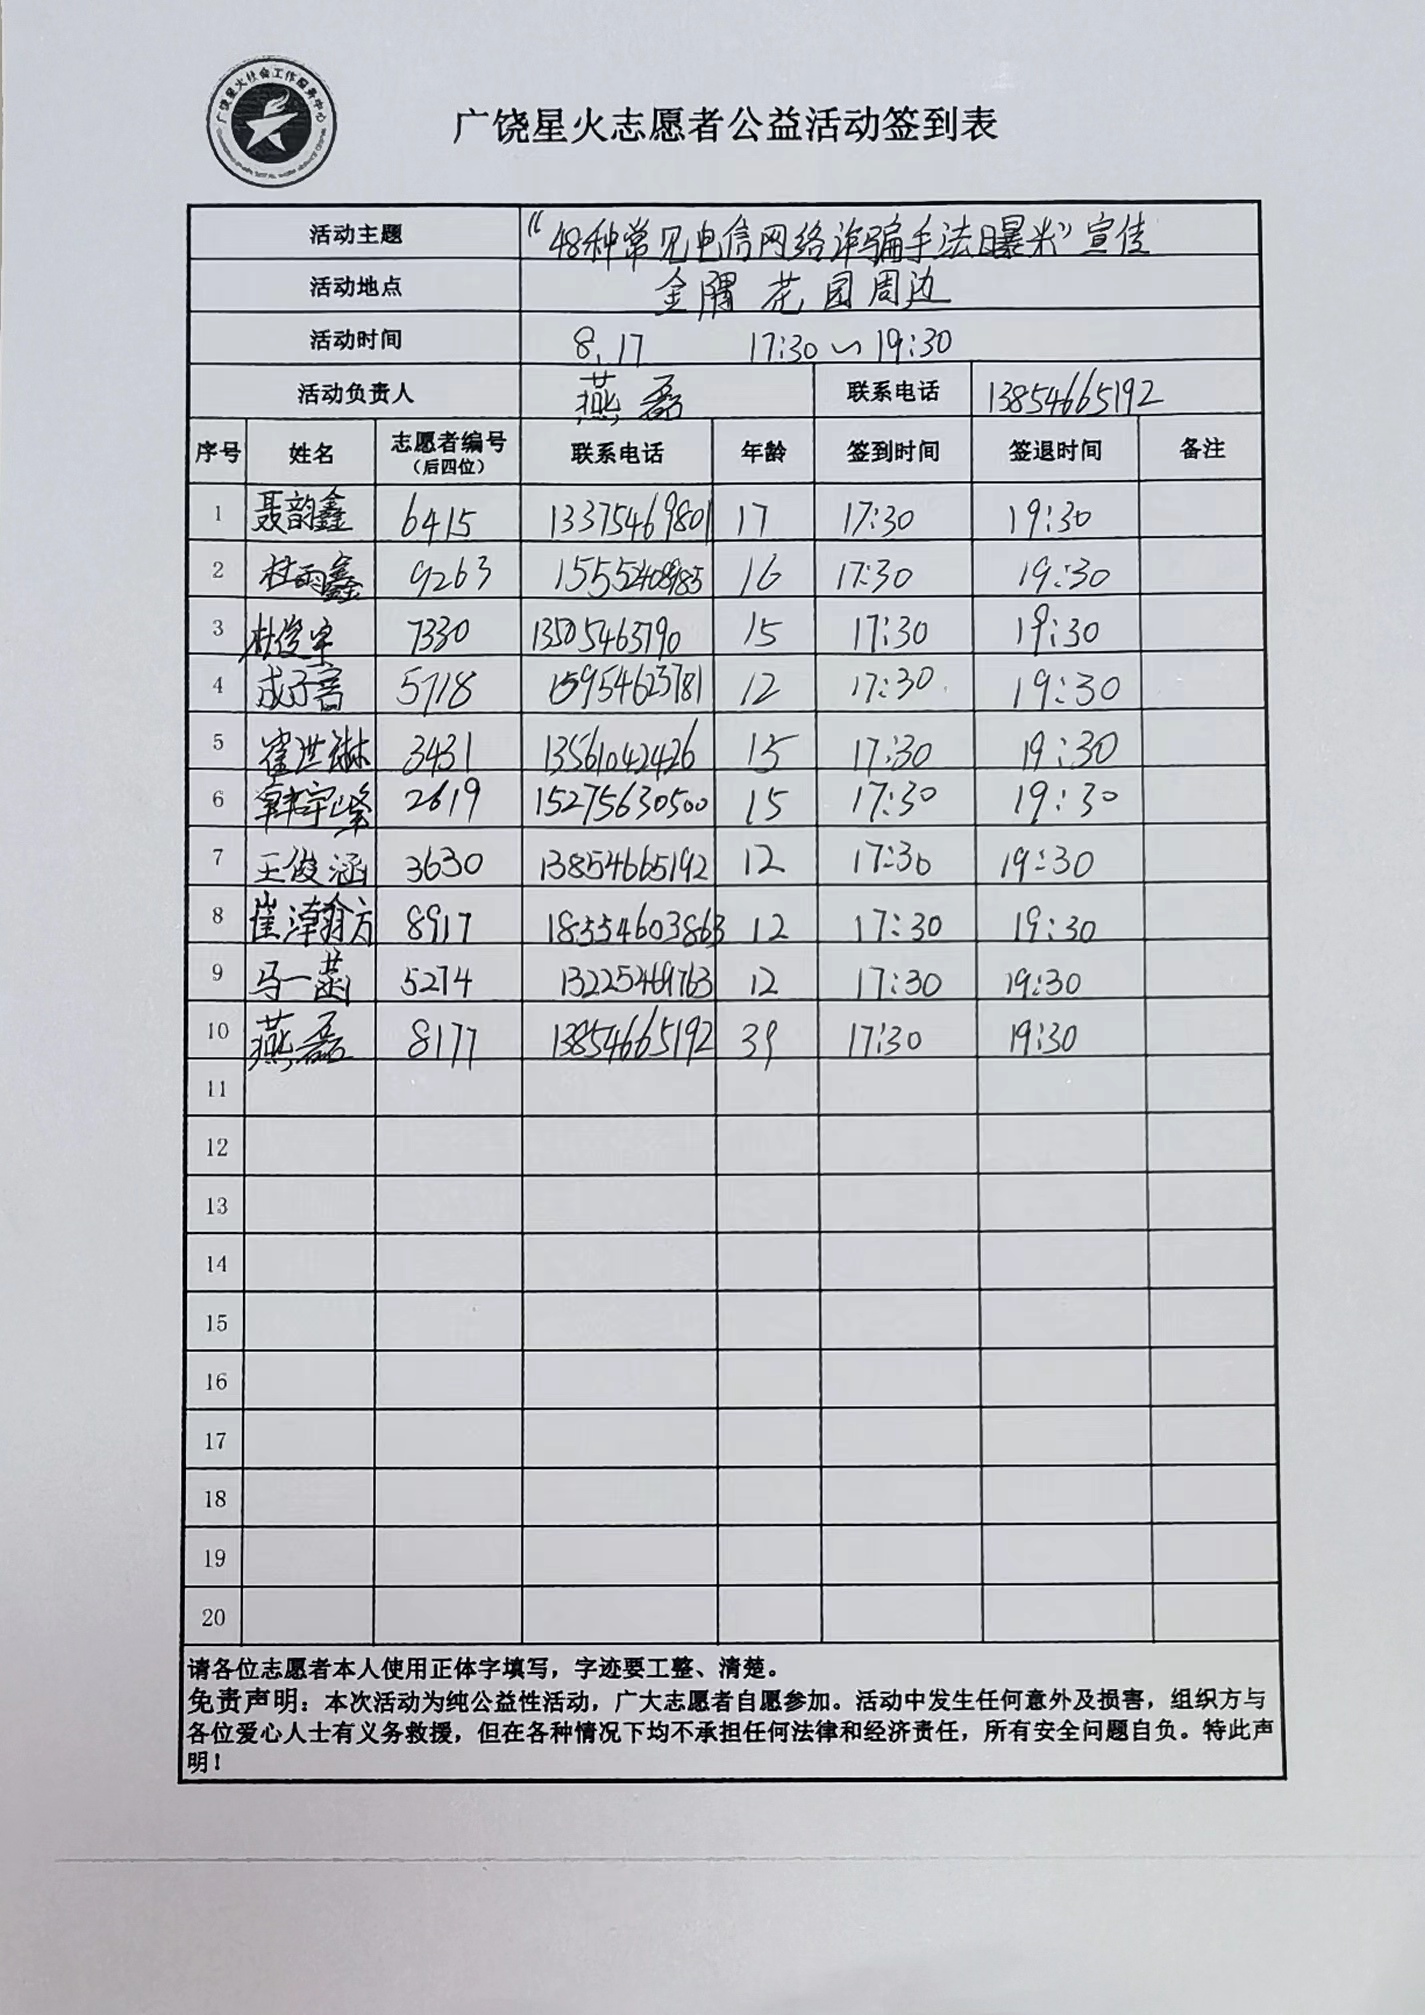 广饶星火社会工作服务中心
广饶星火志愿者公益活动签到表
活动主题 “48种常见电信网络诈骗手法曝光”宣传
活动地点 金隅花园周边
活动时间 8.17 17:30～19:30
活动负责人 燕磊 联系电话 13854665192
序号 姓名 志愿者编号（后四位） 联系电话 年龄 签到时间 签退时间 备注
1 聂韵鑫 6415 13375469801 17 17:30 19:30
2 杜雨鑫 9263 15552408985 16 17:30 19:30
3 杜俊宇 7330 13505463790 15 17:30 19:30
4 成子音 5718 15954623781 12 17:30 19:30
5 崔洪琳 3431 13561042426 15 17:30 19:30
6 韩宇峰 2619 15275630500 15 17:30 19:30
7 王俊涵 3630 13854665192 12 17:30 19:30
8 崔瀚方 8917 18554603863 12 17:30 19:30
9 马一菡 5274 13225469763 12 17:30 19:30
10 燕磊 8177 13854665192 39 17:30 19:30
11
12
13
14
15
16
17
18
19
20
请各位志愿者本人使用正体字填写，字迹要工整、清楚。
免责声明：本次活动为纯公益性活动，广大志愿者自愿参加。活动中发生任何意外及损害，组织方与
各位爱心人士有义务救援，但在各种情况下均不承担任何法律和经济责任，所有安全问题自负。特此声
明！